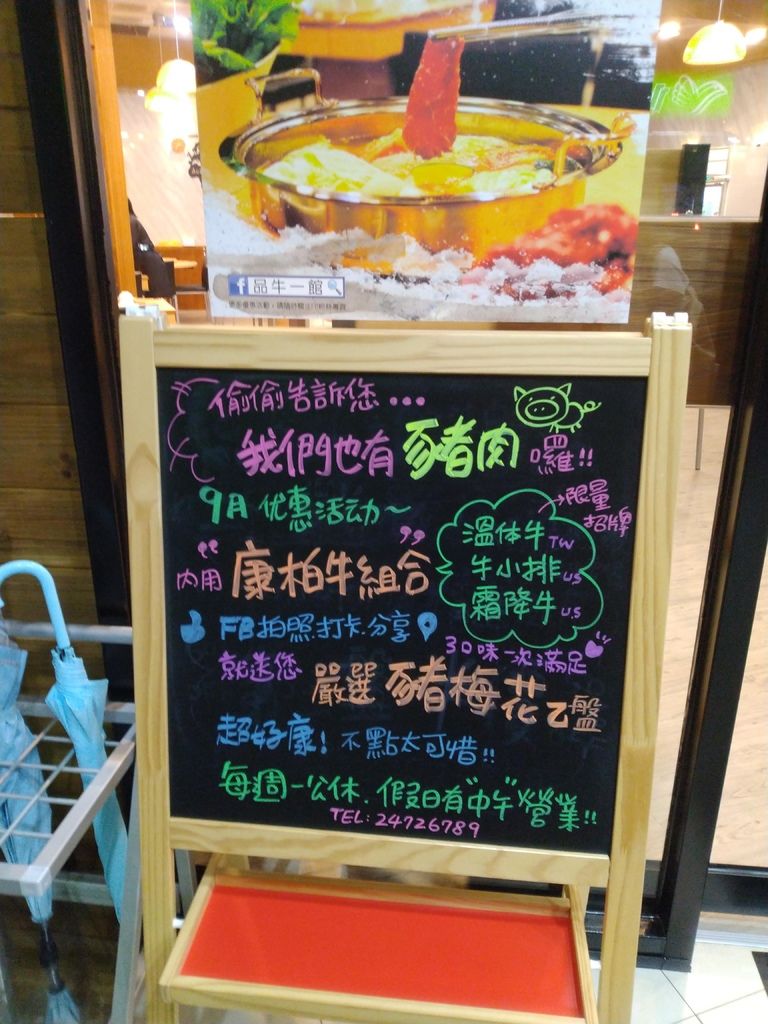 品牛一館
偷偷告訴您...
我們也有豬肉囉!!
9月优惠活动~
→限量招牌
溫体牛TW
牛小排US
霜降牛U.S
內用"康柏牛組合"
FB拍照.打卡.分享
30味一次滿足
就送您 嚴選豬梅花乙盤
超好康! 不點太可惜!!
每週一公休.假日有"中午"營業!!
TEL: 24726789